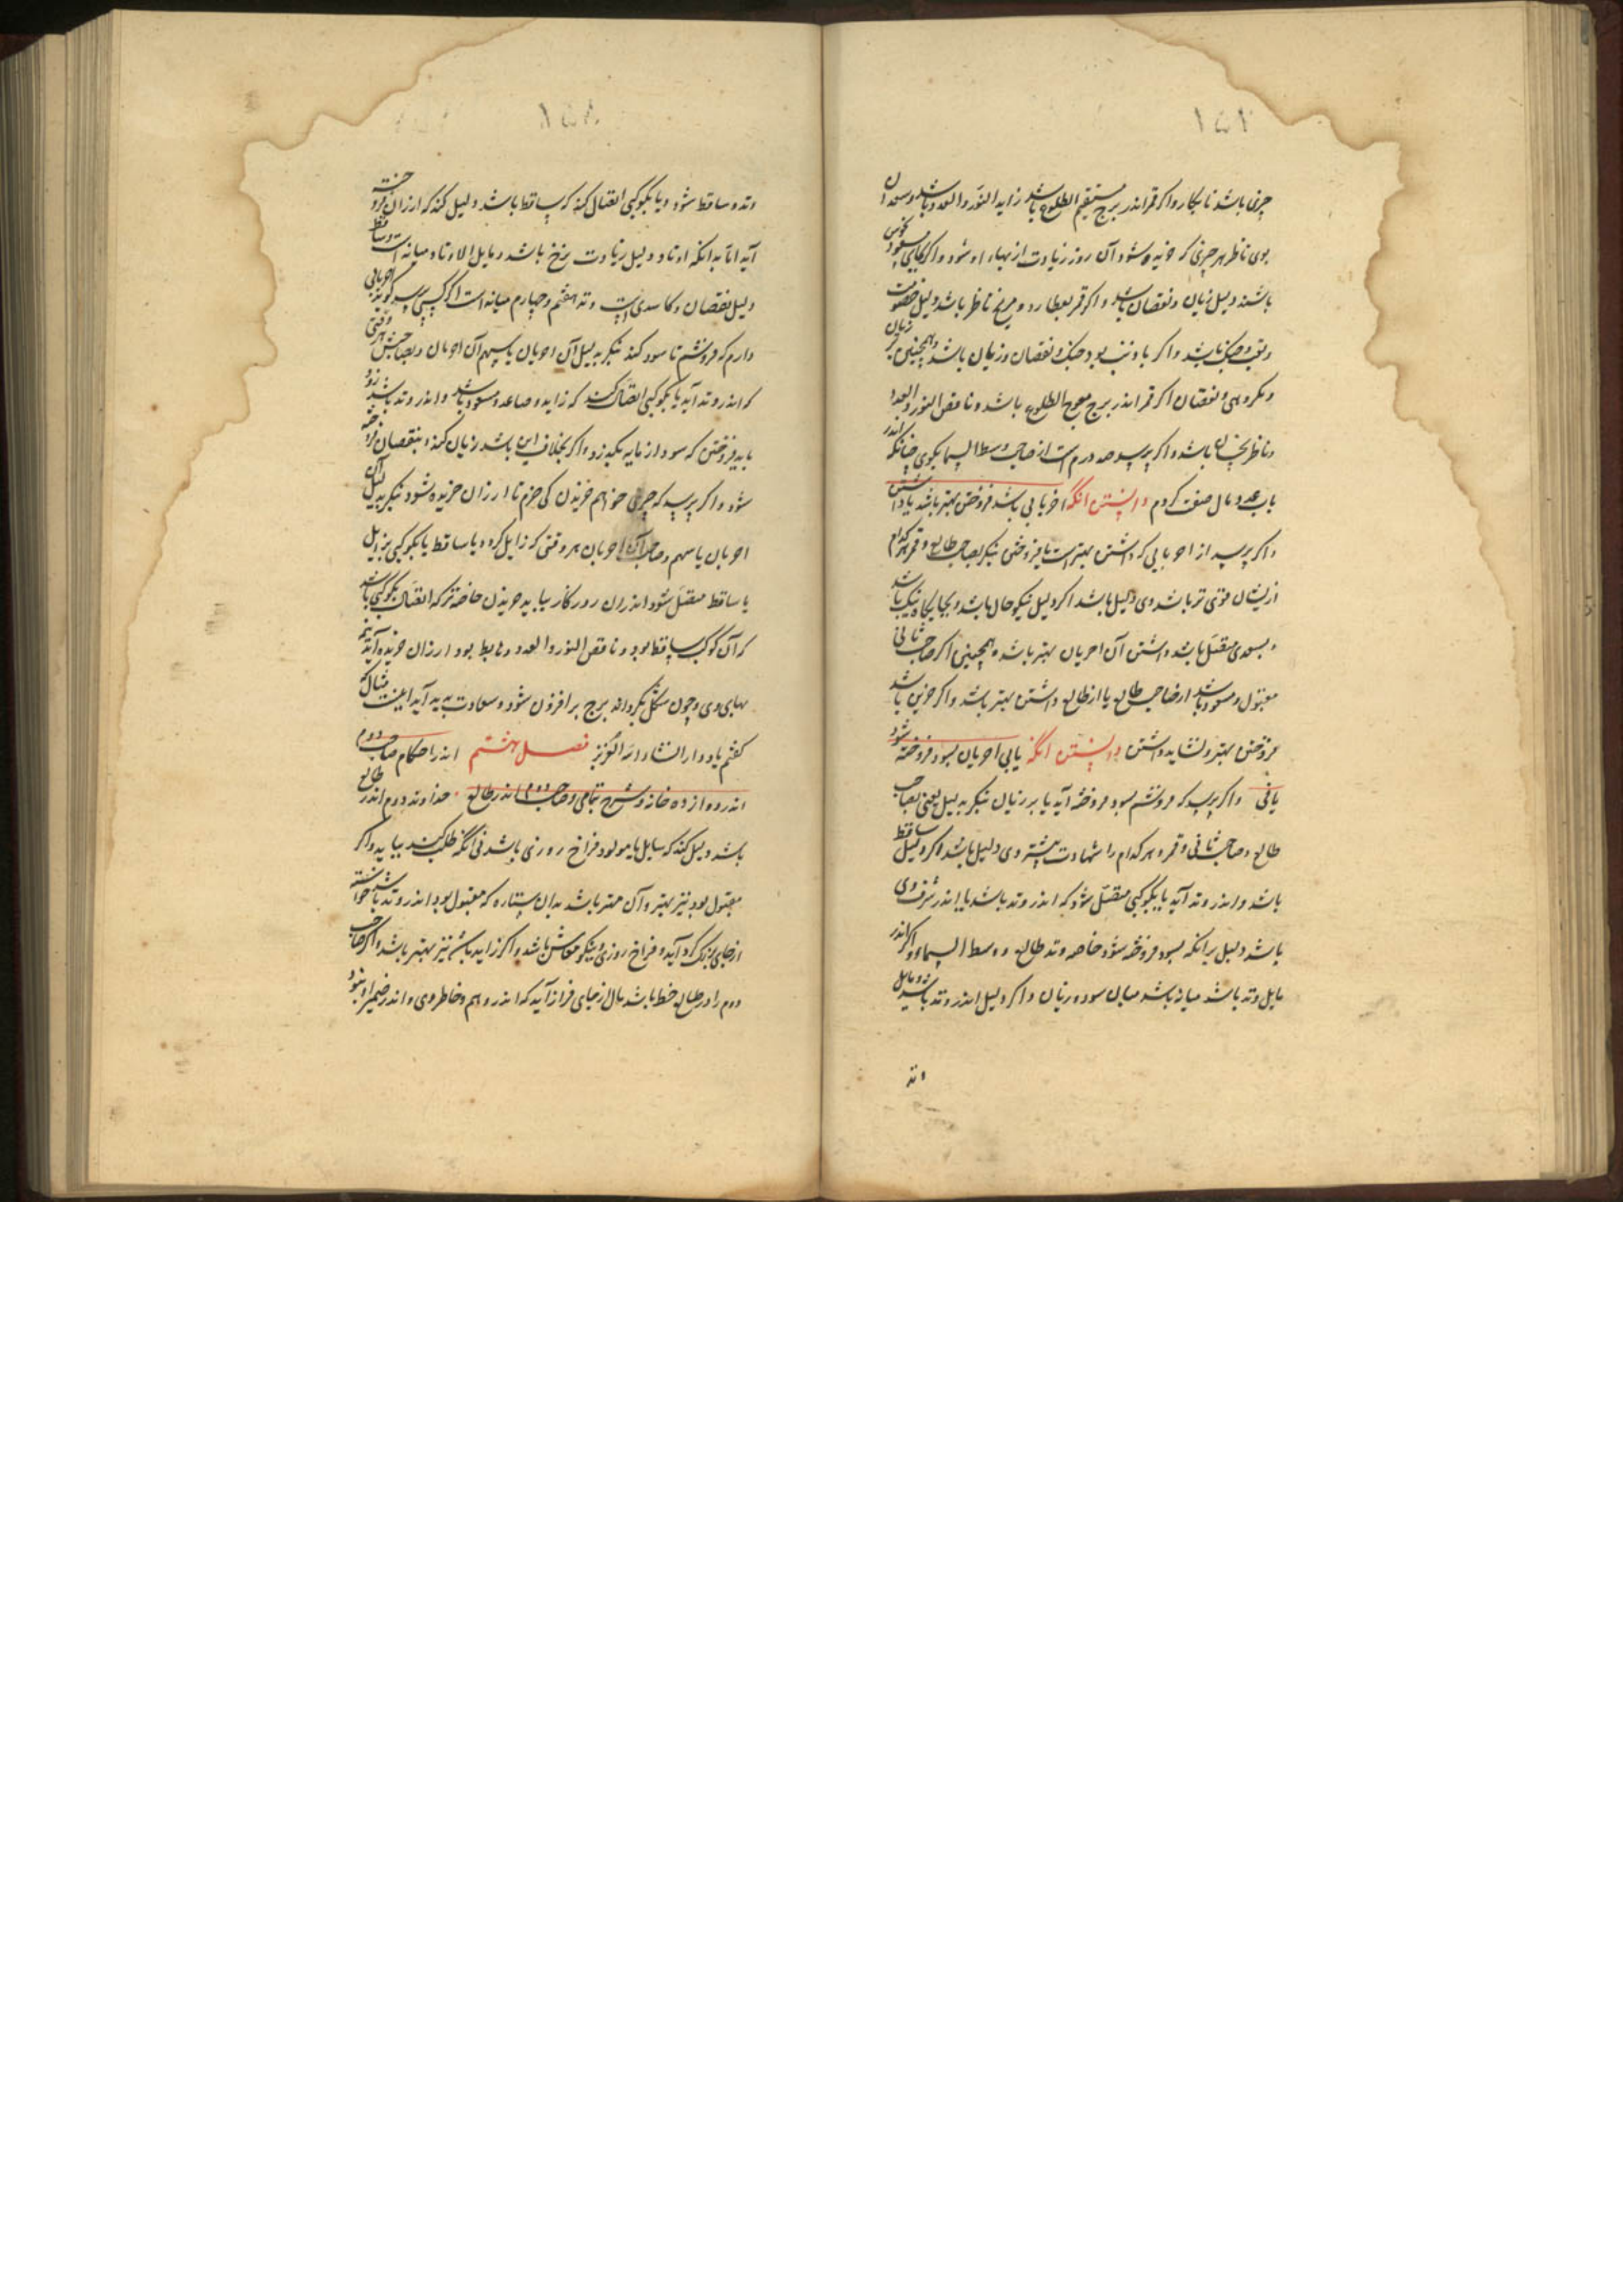 ۱۵۲
چیزی باشد نابکار و اگر قمر اندر برج مستقیم الطلوع باشد زاید النور و العدد باشد و سعدان
بوی ناظر هر چیزی که خریده شود آن روز زیادت از بهاء او شود و اگر بجای سعود نحوس
باشند دلیل زیان و نقصان باشد و اگر قمر بعطارد و مریخ ناظر باشد دلیل خصومت
و جنک باشد و اگر با ذنب بود جنک و نقصان و زیان باشد و همچنین زیان
و مکروهی و نقصان اگر قمر اندر برج معوج الطلوع باشد و ناقص النور و العدد
و ناظر باشد و اگر پرسد صد درم است از صاحب وسط السما بکوی چنانکه اندر
باب عدد مال صفت کردم دانستن انکه اخریانی باشد فروختن بهتر باشد یا داشتن
و اگر پرسد از اخریانی که داشتن بهتر است یا فروختن بنکر بصاحب طالع و قمر هر کدام
ازیشان قوی تر باشد وی دلیل باشد اگر دلیل نیکو حال باشد و بجایکاه نیک باشد
و بسعدی متصل باشد داشتن آن اخریان بهتر باشد و همچنین اگر صاحب ثانی
مقبول و مسعود باشد از صاحب طالع یا از طالع داشتن بهتر باشد و اگر جز این باشد
فروختن بهتر و نشاید داشتن دانستن انکه یابی اخریان بسود فروخته شود
یا نی و اگر پرسد که فروشم بسود فروخته آید یا بر زیان بنکر بدلیل یعنی بصاحب
طالع و صاحب ثانی و قمر و هر کدام را شهادت بیشتر وی دلیل باشد اگر دلیل ساقط
باشد و اندر وتد آید یا بکوکبی متصل شود که اندر وتد باشد یا اندر شرف وی
باشد دلیل بر انکه بسود فروخته شود خاصه وتد طالع و وسط السماء و اگر اندر
مایل وتد باشد میانه باشد میان سود و زیان و اگر دلیل اندر وتد باشد و مایل
وتد
۱۵۸
وتد و ساقط شود و یا بکوکبی اتصال کند که ساقط باشد دلیل کند که ارزان فروخته
آید اما بدانکه اوتاد دلیل زیادت نرخ باشد و مایل الاوتاد میانه است و ساقط
دلیل نقصان و کاسدی است وتد هفتم و چهارم میانه است اگر کسی پرسد کوید اخریانی
دارم که فروشم تا سود کند بنکر بدلیل آن اخریان یا بسهم آن اخریان و بصاحبش هر وقتی
که اندر وتد آید یا بکوکبی اتصال کند که زاید و صاعد و مسعود باشد و اندر وتد باشد زود
باید فروختن که سود از مایه بکذرد و اگر بخلاف این باشد زیان کند و بنقصان فروخته
شود و اگر پرسد که چیزی خواهم خریدن کی خرم تا ارزان خریده شود بنکر بدلیل آن
اخریان یا سهم و صاحب آن اخریان هر وقتی که زایل کردد یا ساقط یا بکوکبی زایل
یا ساقط متصل شود اندران روزکار بباید خریدن خاصه تر که اتصال بکوکبی باشد
که آن کوکب ساقط بود و ناقص النور و العدد و هابط بود ارزان خریده آید بنیم
بهای وی و چون شکل بکرداند برج بر افزون شود و سعادت پدید آید اینست مثال که
کفتم یاد دار انشاء الله العزیز فصل هشتم اندر احکام صاحب دوم
اندر دوازده خانه و شرح تمامی و صاحب دوم اندر طالع خداوند دوم اندر طالع
باشد دلیل کند که سایل یا مولود فراخ روزی باشد بی انکه طلب کند بیابد و اگر
مقبول بود نیز بهتر و آن مهتر باشد بدان ستاره که مقبول بود اندر وتد باشد خواسته
از جای بزرک کرد آید و فراخ روزی و نیکو معاش باشد و اگر زاید باشد نیز بهتر باشد و اگر صاحب
دوم را در طالع حظ باشد مال از جای فراز آید که اندر وهم و خاطر وی و اندر ضمیر او نبود